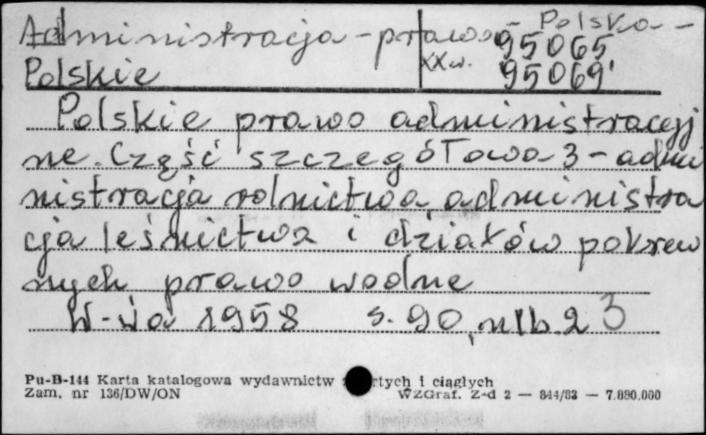 Administracja - prawo - Polska -
95065
Polskie XX w. 95069'
Polskie prawo administracyj
ne. Część szczegółowa 3 - admi
nistracja rolnictwa administra
cja leśnictwa i działów pokrew
nych prawo wodne
W-wa 1958 s. 90, nlb 2 3
Pu-B-144 Karta katalogowa wydawnictw rtych i ciągłych
Zam. nr 136/DW/ON WZGraf. Z-d 2 — 844/83 — 7.890.000